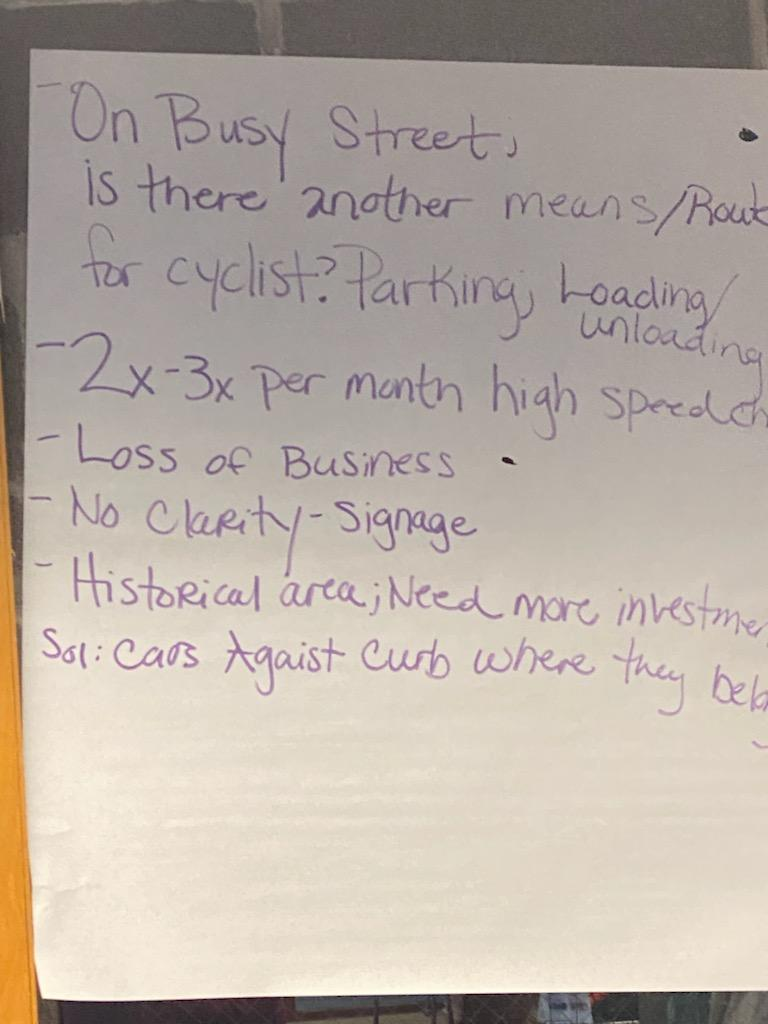 - On Busy Street,
is there another means/Rout
for cyclist? Parking, Loading/
unloading
- 2x-3x per month high speed ch
- Loss of Business
- No Clarity - Signage
- Historical area; Need more investme
Sol: Cars Agaist Curb where they belo